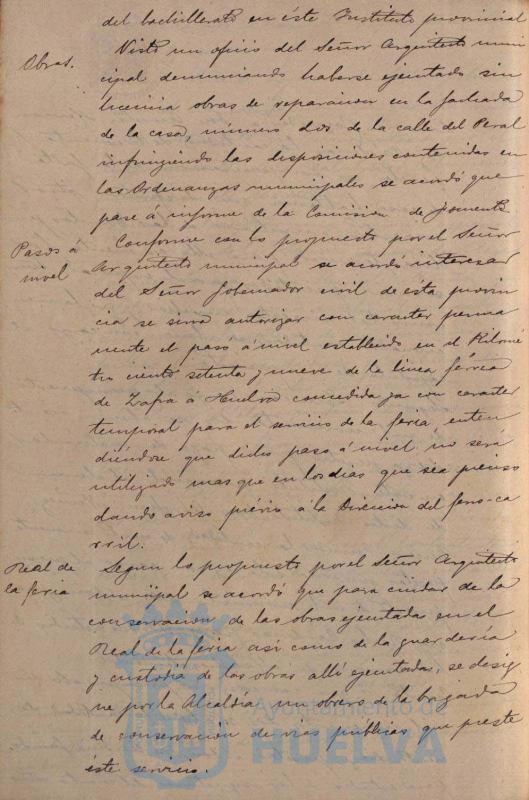 del bachillerato en éste Instituto provincial
Obras.
Visto un oficio del Señor Arquitecto muni-
cipal denunciando haberse ejecutado sin
licencia obras de reparacion en la fachada
de la casa, número dos de la calle del Peral
infringiendo las disposiciones contenidas en
las Ordenanzas municipales se acordó que
pase á informe de la Comision de fomento.
Pasos á
nivel
Conforme con lo propuesto por el Señor
Arquitecto municipal se acordó interesar
del Señor Gobernador civil de esta provin
cia se sirva autorizar con caracter perma
nente el pasó á nivel establecido en el Kilome
tro ciento setenta y nueve de la linea férrea
de Zafra á Huelva concedida ya con caracter
temporal para el servicio de la feria, enten
diéndose que dicho paso á nivel no será
utilizado mas que en los dias que sea preciso
dando aviso prévio á la Direccion del ferro-ca
rril.
Real de
la feria
Segun lo propuesto por el Señor Arquitecto
municipal se acordó que para cuidar de la
conservacion de las obras ejecutadas en el
Real de la feria asi como de la guarderia
y custodia de las obras allí ejecutadas, se desig
ne por la Alcaldía un obrero de la brigada
de conservacion de vias públicas que preste
éste servicio.
Ayuntamiento de
HUELVA